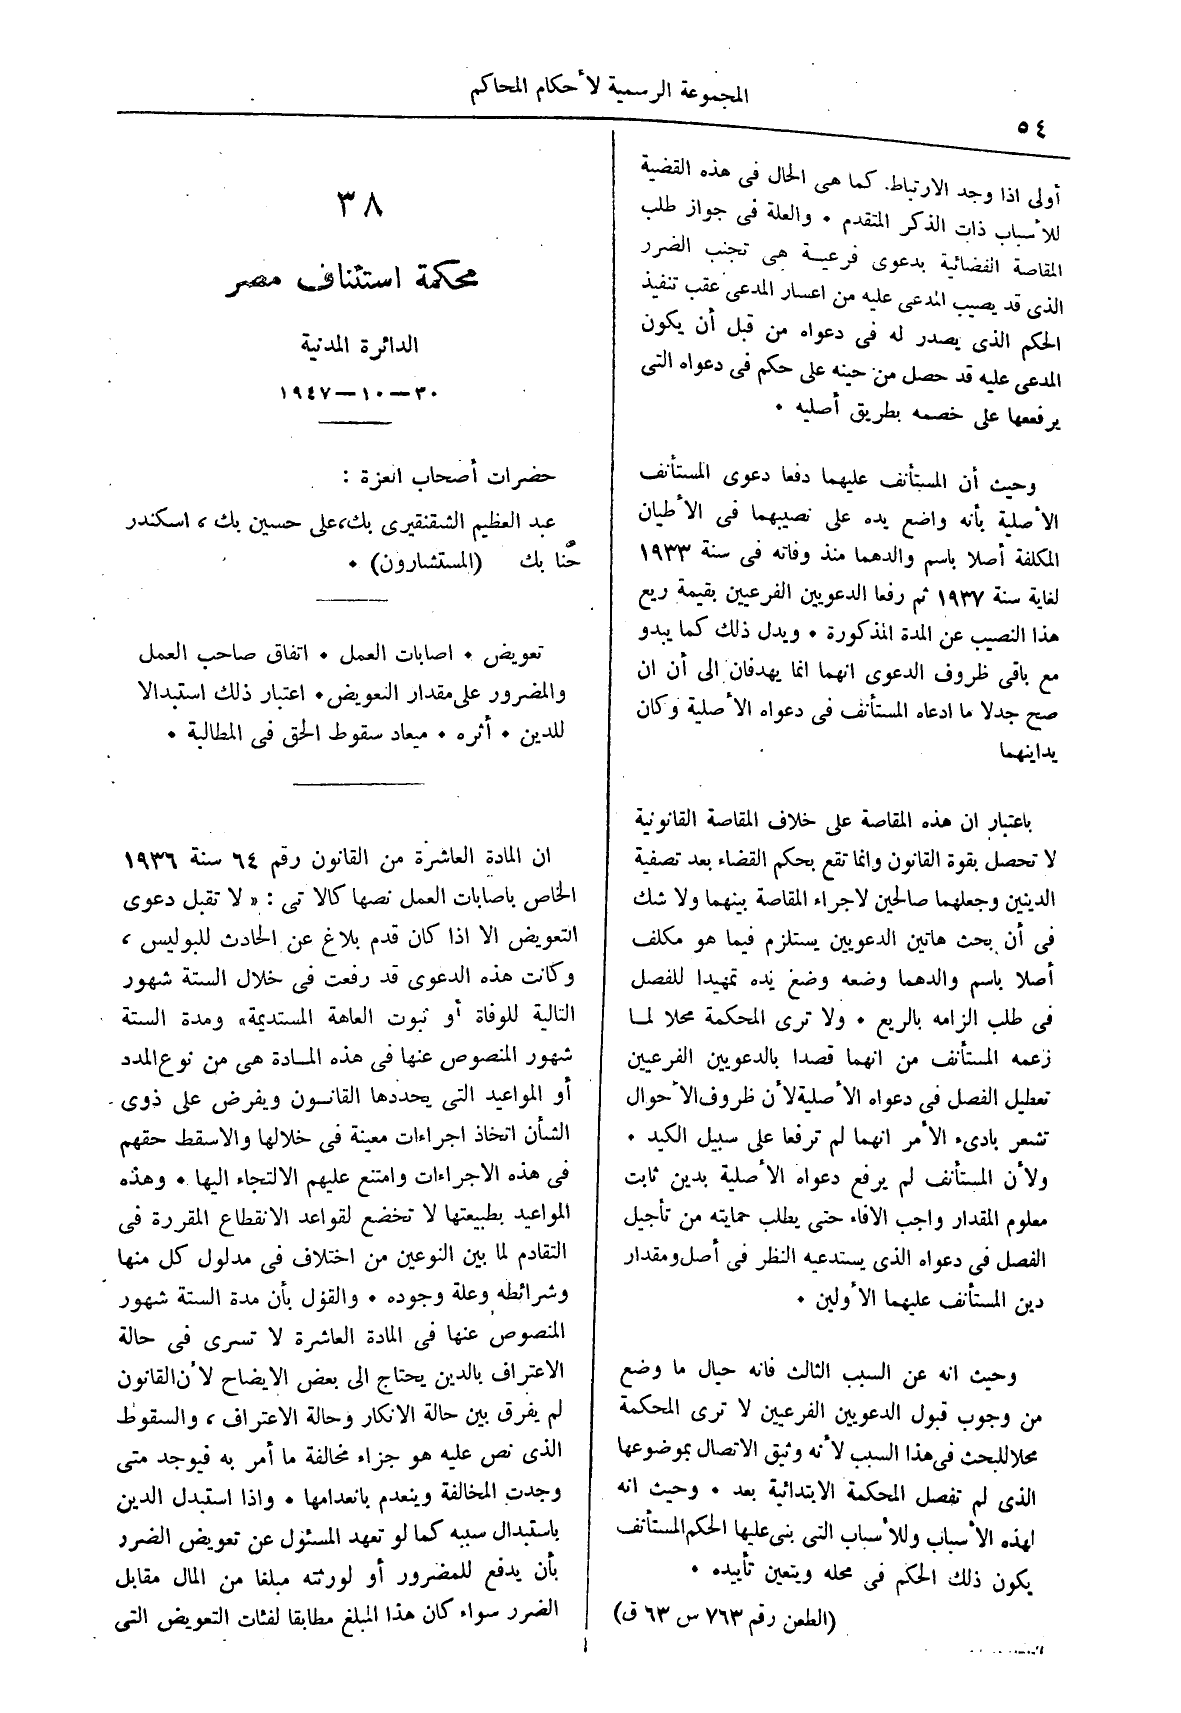 المجموعة الرسمية لأحكام المحاكم
٥٤
أولى اذا وجد الارتباط. كما هى الحال فى هذه القضية
للأسباب ذات الذكر المتقدم • والعلة فى جواز طلب
المقاصة القضائية بدعوى فرعية هى تجنب الضرر
الذى قد يصيب المدعى عليه من اعسار المدعى عقب تنفيذ
الحكم الذى يصدر له فى دعواه من قبل أن يكون
المدعى عليه قد حصل من حينه على حكم فى دعواه التى
يرفعها على خصمه بطريق أصليه •
وحيث أن المستأنف عليهما دفعا دعوى المستأنف
الأصلية بأنه واضع يده على نصيبهما فى الأطيان
المكلفة أصلا باسم والدهما منذ وفاته فى سنة ١٩٣٣
لغاية سنة ١٩٣٧ ثم رفعا الدعويين الفرعيين بقيمة ريع
هذا النصيب عن المدة المذكورة • ويدل ذلك كما يبدو
مع باقى ظروف الدعوى انهما انما يهدفان الى أن ان
صح جدلا ما ادعاه المستأنف فى دعواه الأصلية وكان
يداينهما
باعتبار ان هذه المقاصة على خلاف المقاصة القانونية
لا تحصل بقوة القانون وانما تقع بحكم القضاء بعد تصفية
الدينين وجعلهما صالحين لاجراء المقاصة بينهما ولا شك
فى أن بحث هاتين الدعويين يستلزم فيما هو مكلف
أصلا باسم والدهما وضعه وضع يده تمهيدا للفصل
فى طلب الزامه بالريع • ولا ترى المحكمة محلا لما
زعمه المستأنف من انهما قصدا بالدعويين الفرعيين
تعطيل الفصل فى دعواه الأصلية لأن ظروف الأحوال
تشعر بادىء الأمر انهما لم ترفعا على سبيل الكيد •
ولأن المستأنف لم يرفع دعواه الأصلية بدين ثابت
معلوم المقدار واجب الافاء حتى يطلب حمايته من تأجيل
الفصل فى دعواه الذى يستدعيه النظر فى أصل ومقدار
دين المستأنف عليهما الأولين •
وحيث انه عن السبب الثالث فانه حيال ما وضع
من وجوب قبول الدعويين الفرعيين لا ترى المحكمة
محلا للبحث فى هذا السبب لأنه وثيق الاتصال بموضوعها
الذى لم تفصل المحكمة الابتدائية بعد • وحيث انه
لهذه الأسباب وللأسباب التى بنى عليها الحكم المستأنف
يكون ذلك الحكم فى محله ويتعين تأييده •
(الطعن رقم ٧٦٣ س ٦٣ ق)
٣٨
محكمة استئناف مصر
الدائرة المدنية
٣٠—١٠—١٩٤٧
حضرات أصحاب العزة :
عبد العظيم الشقنقيرى بك، على حسين بك ، اسكندر
حُنا بك (المستشارون) •
تعويض • اصابات العمل • اتفاق صاحب العمل
والمضرور على مقدار التعويض • اعتبار ذلك استبدالا
للدين • أثره • ميعاد سقوط الحق فى المطالبة •
ان المادة العاشرة من القانون رقم ٦٤ سنة ١٩٣٦
الخاص باصابات العمل نصها كالاتى : «لا تقبل دعوى
التعويض الا اذا كان قدم بلاغ عن الحادث للبوليس ،
وكانت هذه الدعوى قد رفعت فى خلال الستة شهور
التالية للوفاة أو ثبوت العاهة المستديمة» ومدة الستة
شهور المنصوص عنها فى هذه المادة هى من نوع المدد
أو المواعيد التى يحددها القانون ويفرض على ذوى
الشأن اتخاذ اجراءات معينة فى خلالها والاسقط حقهم
فى هذه الاجراءات وامتنع عليهم الالتجاء اليها • وهذه
المواعيد بطبيعتها لا تخضع لقواعد الانقطاع المقررة فى
التقادم لما بين النوعين من اختلاف فى مدلول كل منها
وشرائطه وعلة وجوده • والقول بأن مدة الستة شهور
المنصوص عنها فى المادة العاشرة لا تسرى فى حالة
الاعتراف بالدين يحتاج الى بعض الايضاح لأن القانون
لم يفرق بين حالة الانكار وحالة الاعتراف ، والسقوط
الذى نص عليه هو جزاء مخالفة ما أمر به فيوجد متى
وجدت المخالفة وينعدم بانعدامها • واذا استبدل الدين
باستبدال سببه كما لو تعهد المسئول عن تعويض الضرر
بأن يدفع للمضرور أو لورثته مبلغا من المال مقابل
الضرر سواء كان هذا المبلغ مطابقا لفئات التعويض التى